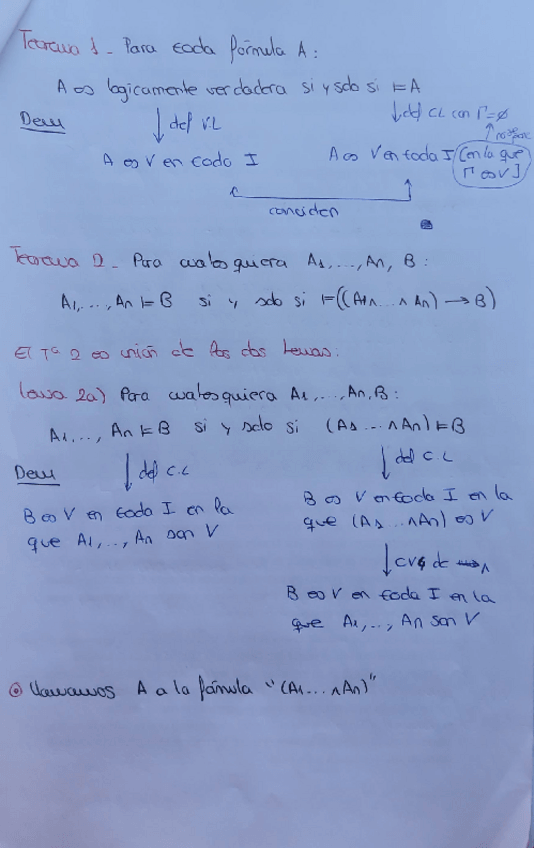 Teorema 1 - Para toda fórmula A:
A es logicamente verdadera si y solo si ⊨A
Dem ↓ def VL ↓ def CL con Γ=∅
A es V en todo I A es V en toda I [en la que
Γ es V]
coinciden
Teorema 2 - Para cualesquiera A₁,...,An, B:
A₁,..., An ⊨ B si y solo si ⊨((A₁∧...∧An) → B)
El Tª 2 es unión de los dos lemas:
Lema 2a) Para cualesquiera A₁,...,An,B:
A₁,..., An ⊨ B si y solo si (A₁...∧An)⊨B
Dem ↓ def C.L ↓ def C.L
B es V en toda I en la
que A₁,..., An son V
B es V en toda I en la
que (A₁...∧An) es V
↓ CV de ∧
B es V en toda I en la
que A₁,..., An son V
Llamamos A a la fórmula "(A₁...∧An)"